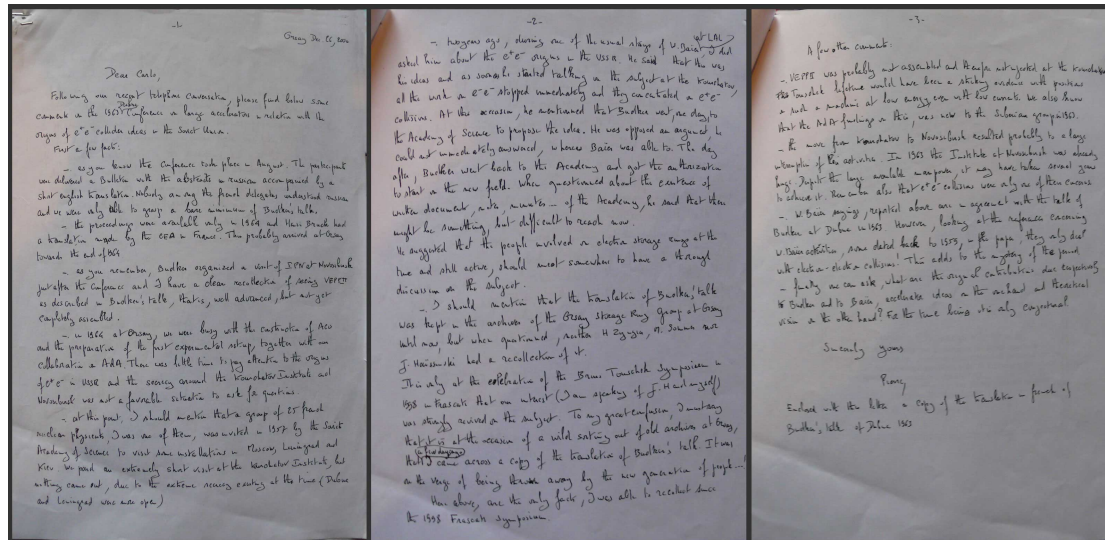 -1-
Orsay Dec. 26, 2000
Dear Carlo,
Following our recent telephone conversation, please find below some
comments on the 1963 Dubna Conference on large accelerators in relation with the
origins of e+e- collider ideas in the Soviet Union.
First a few facts:
- as you know the Conference took place in August. The participants
was delivered a Bulletin with the abstracts in russian accompanied by a
short english translation. Nobody among the french delegates understood russian
and we were only able to grasp a bare minimum of Budker's talk.
- the proceedings were available only in 1964 and Henri Bruck had
a translation made by the CEA in France. This probably arrived at Orsay
towards the end of 1964
- as you remember, Budker organized a visit of IPN at Novosibirsk
just after the Conference and I have a clear recollection of seeing VEPPII
as described in Budker's talk, that is, well advanced, but not yet
completely assembled.
- in 1964 at Orsay, we were busy with the construction of ACO
and the preparation of the first experimental set up, together with our
collaboration on AdA. There was little time to pay attention to the origins
of e+e- in USSR and the secrecy around the Kourchatov Institute and
Novosibirsk was not a favorable situation to ask for questions.
- at this point, I should mention that a group of 25 french
nuclear physicists, I was one of them, was invited in 1957 by the Soviet
Academy of Science to visit some installations in Moscow, Leningrad and
Kiev. We paid an extremely short visit at the Kourchatov Institute, but
nothing came out, due to the extreme secrecy existing at the time (Dubna
and Leningrad were more open)
-2-
- two years ago, during one of the usual stage of V. Baier at LAL, I
asked him about the e+e- origins in the USSR. He said that this was
his ideas and as soon as he started talking on the subject at the Kourchatov,
all the work on e-e- stopped immediately and they concentrated on e+e-
collisions. At this occasion, he mentioned that Budker went one day to
the Academy of Science to propose the idea. He was opposed an argument, he
could not immediately answered, whereas Baier was able to. The day
after, Budker went back to the Academy and got the authorization
to start on the new field. When questioned about the existence of
written document, note, minutes - of the Academy, he said that there
might be something, but difficult to reach now.
He suggested that the people involved on electron storage rings at the
time and still active, should meet somewhere to have a through
discussion on the subject.
- I should mention that the translation of Budker's talk
was kept in the archives of the Orsay Storage Ring group at Orsay
until now, but when questioned, neither H. Zyngier, M. Sommer nor
J. Haissinski had a recollection of it.
It is only at the celebration of the Bruno Touschek Symposium in
1998 in Frascati that our interest (I am speaking of J. H. and myself)
was strongly revived on the subject. To my great confusion, I must say
that it is at the occasion of a wild sorting out of old archives at Orsay,
a few days ago
that I came across a copy of the translation of Budker's talk. It was
on the verge of being thrown away by the new generation of people...!
Here above, are the only facts, I was able to recollect since
the 1998 Frascati Symposium.
-3-
A few other comments:
- VEPPI was probably not assembled and therefore not injected at the Kourchatov
the Touschek lifetime would have been a striking evidence with positrons
in such a machine at low energy even with low currents. We also know
that the AdA findings on this, was new to the Siberian group in 1963.
- the move from Kourchatov to Novosibirsk resulted probably to a large
interruption of the activities. In 1963 the Institute at Novosibirsk was already
huge. Despite the large available manpower, it may have taken several years
to achieve it. Remember also that e+e- collisions were only one of their concerns
- V. Baier sayings, reported above are in agreement with the talk of
Budker at Dubna in 1963. However, looking at the references concerning
V. Baier activities, some dated back to 1959, in the paper, they only deal
with electron-electron collisions! This adds to the mystery of the period
- finally one can ask, what are the original contributions due respectively
to Budker and to Baier, accelerator ideas on the one hand and theoretical
vision on the other hand? For the time being it is only conjectural
Sincerely yours
Pierre
Enclosed with this letter a copy of the translation in french of
Budker's talk at Dubna 1963